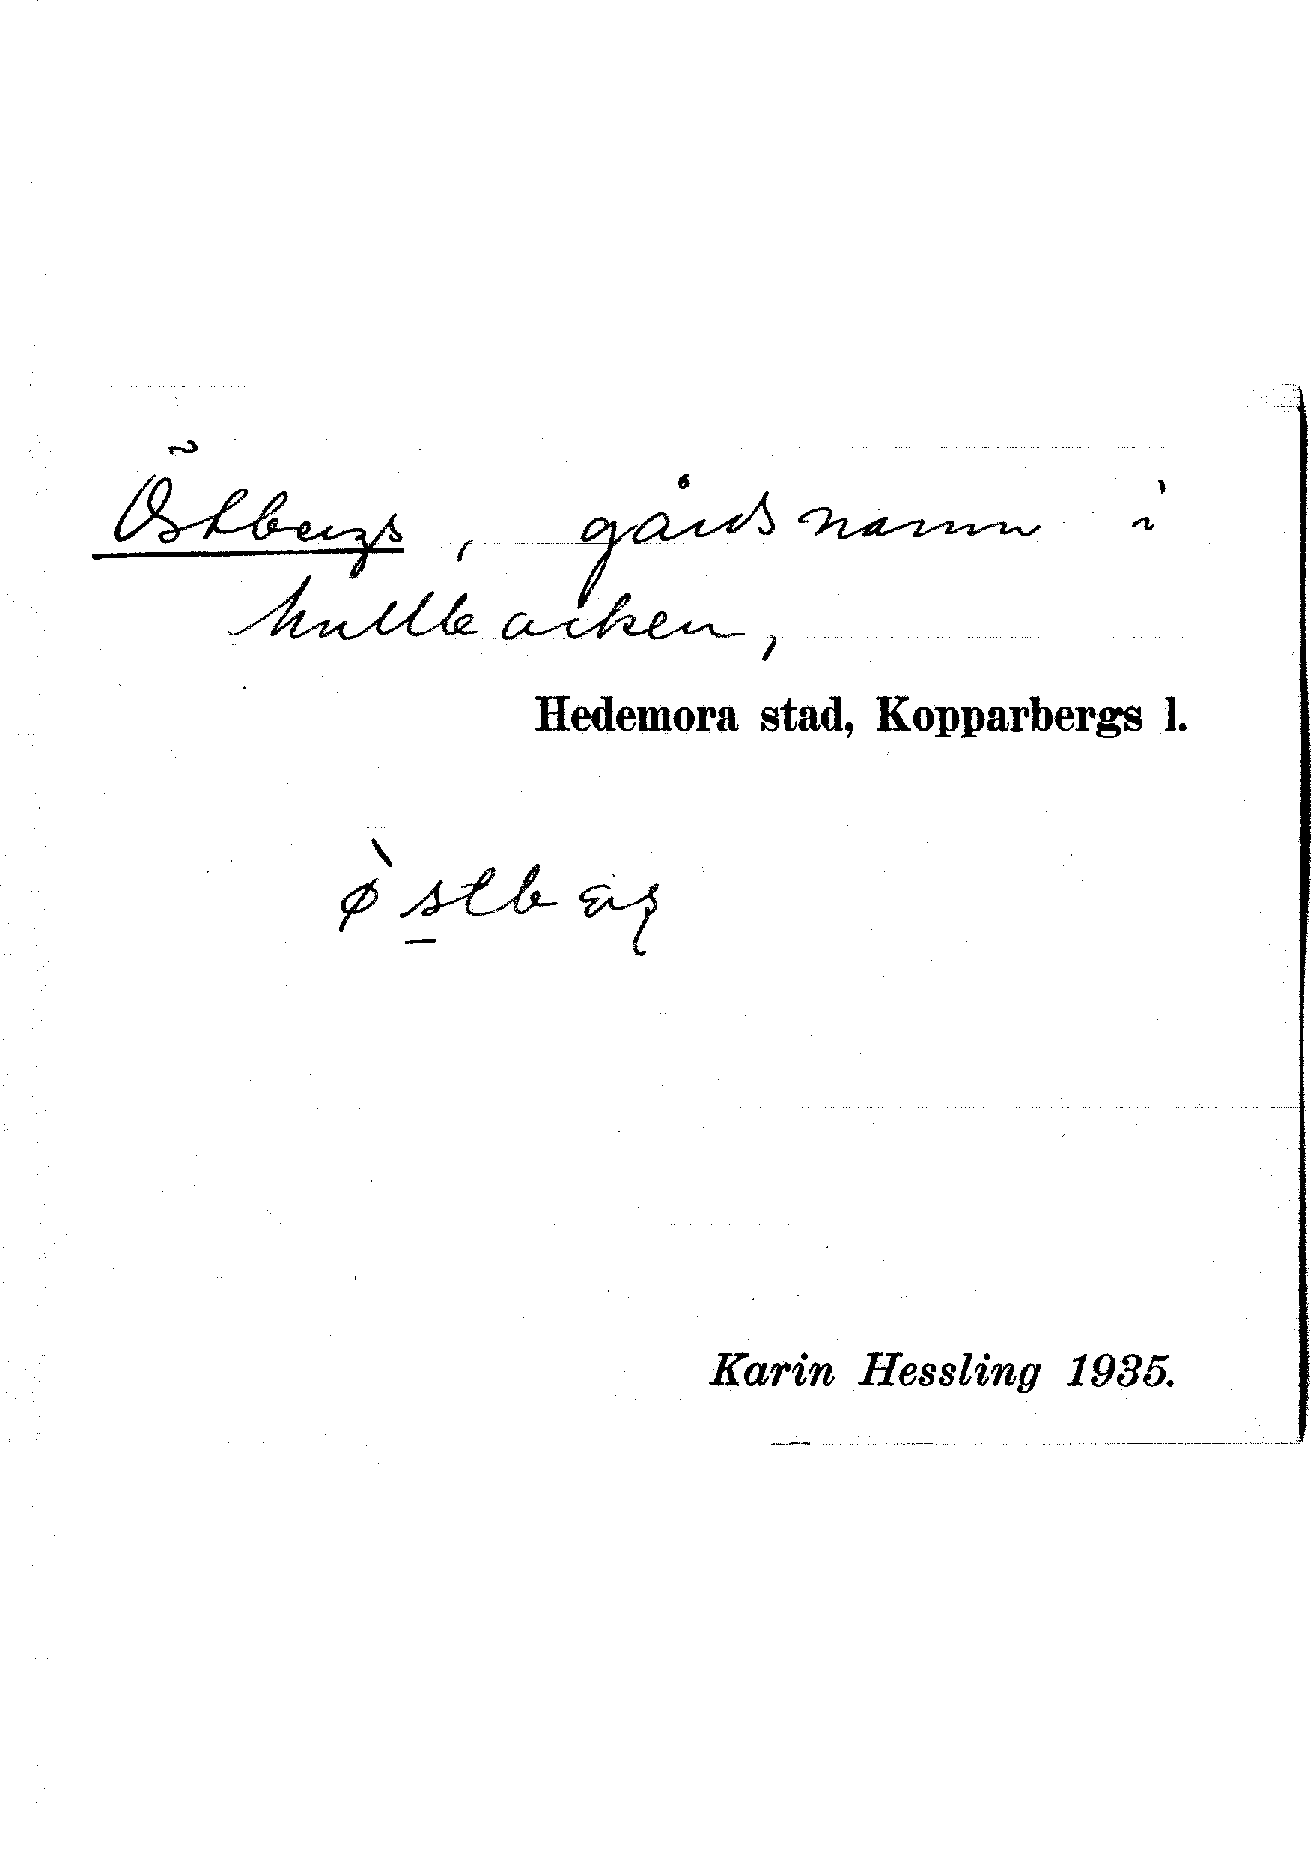 Östbergs, gårdsnamn i
Kullbacken,
Hedemora stad, Kopparbergs l.
Karin Hessling 1935.